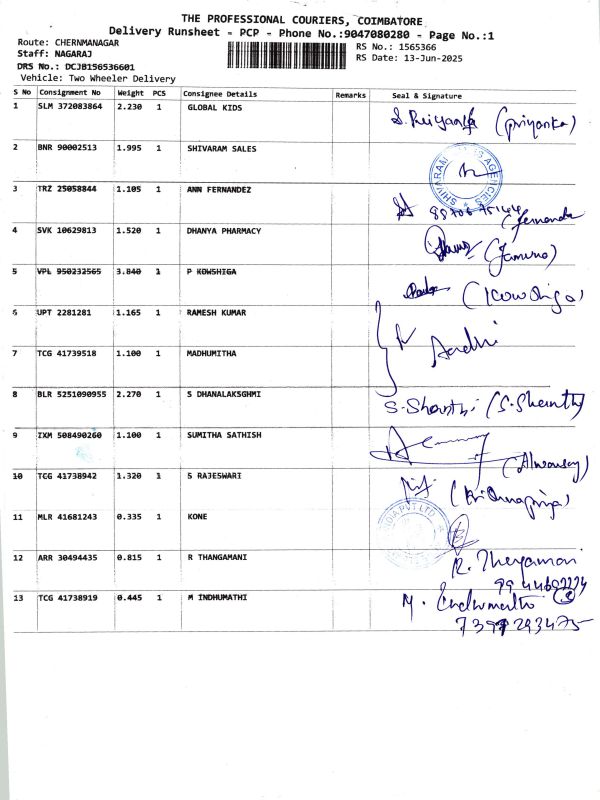 THE PROFESSIONAL COURIERS, COIMBATORE
Delivery Runsheet - PCP - Phone No.:9047080280 - Page No.:1
Route: CHERNMANAGAR
Staff: NAGARAJ
DRS No.: DCJB156536601
Vehicle: Two Wheeler Delivery
RS No.: 1565366
RS Date: 13-Jun-2025
S No Consignment No Weight PCS Consignee Details Remarks Seal & Signature
1 SLM 372083864 2.230 1 GLOBAL KIDS S. Priyanka (Priyanka)
2 BNR 90002513 1.995 1 SHIVARAM SALES SHIVARAM SALES AGENCIES
3 TRZ 25058844 1.105 1 ANN FERNANDEZ
4 SVK 10629813 1.520 1 DHANYA PHARMACY (Jamuna)
5 VPL 950232565 3.840 1 P KOWSHIGA (Kowshiga)
6 UPT 2281281 1.165 1 RAMESH KUMAR
7 TCG 41739518 1.100 1 MADHUMITHA
8 BLR 5251090955 2.270 1 S DHANALAKSGHMI S. Shanthi (S. Shanthi)
9 IXM 508490260 1.100 1 SUMITHA SATHISH
10 TCG 41738942 1.320 1 S RAJESWARI (Krishnapriya)
11 MLR 41681243 0.335 1 KONE
12 ARR 30494435 0.815 1 R THANGAMANI
13 TCG 41738919 0.445 1 M INDHUMATHI M. Indhumathi
7397293475